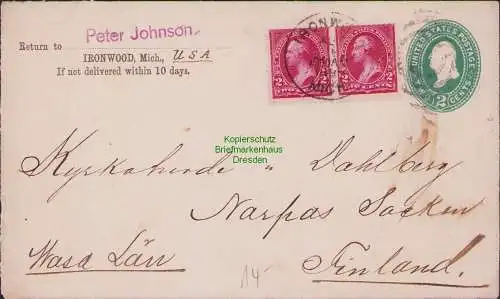 Peter Johnson.
Return to
IRONWOOD, Mich., USA
If not delivered within 10 days.
IRONWOOD
MICH
2 TWO CENTS 2
2 TWO CENTS 2
UNITED STATES POSTAGE
2
CENTS
Kopierschutz
Briefmarkenhaus
Dresden
Kyrkoherde " Dahlberg
Narpas Socken
Wasa Län
Finland.
14